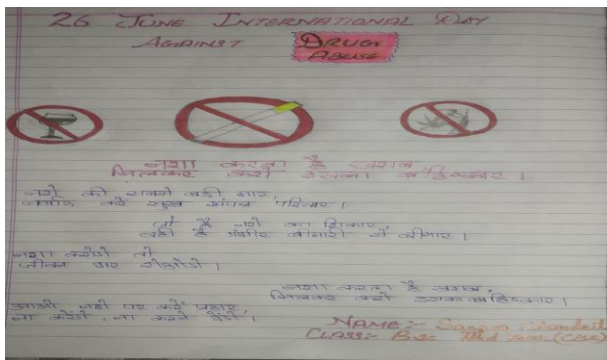 26 JUNE INTERNATIONAL DAY
AGAINST DRUG
ABUSE
नशा करता है खराब,
मिलकर करो इसका बहिष्कार।
नशे की सबसे बड़ी मार,
करे सुख संपन्न परिवार।
जो है नशे का शिकार,
वही है गंभीर बीमारी से बीमार।
नशा करोगे तो
जीवन भर रोओगे।
नशा करता है खराब,
मिलकर करो इसका बहिष्कार।
आओ नशे पर करें प्रहार,
ना करेंगे, ना करने देंगे।
NAME:-
CLASS:- IIIrd (CBZ)